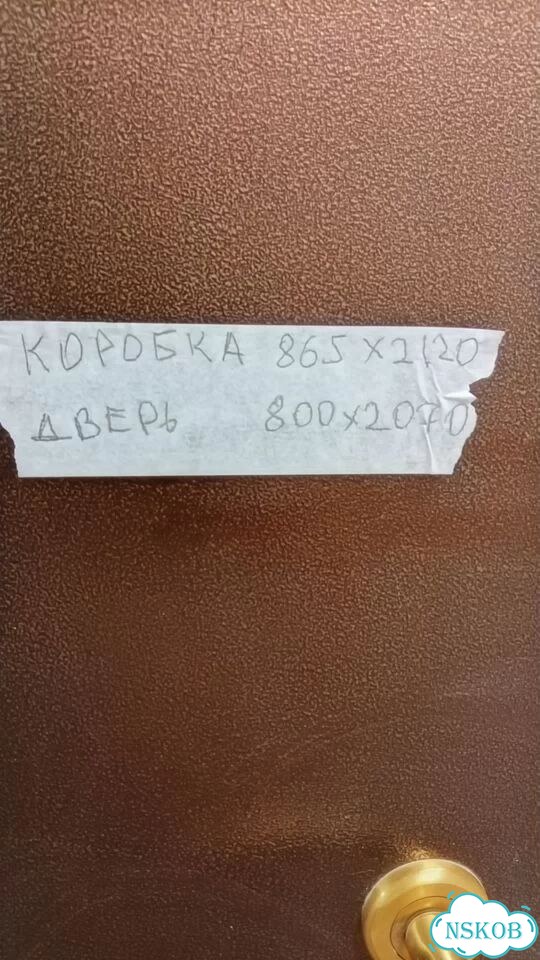 КОРОБКА 865 X 2120
ДВЕРЬ 800 X 2070
NSKOB